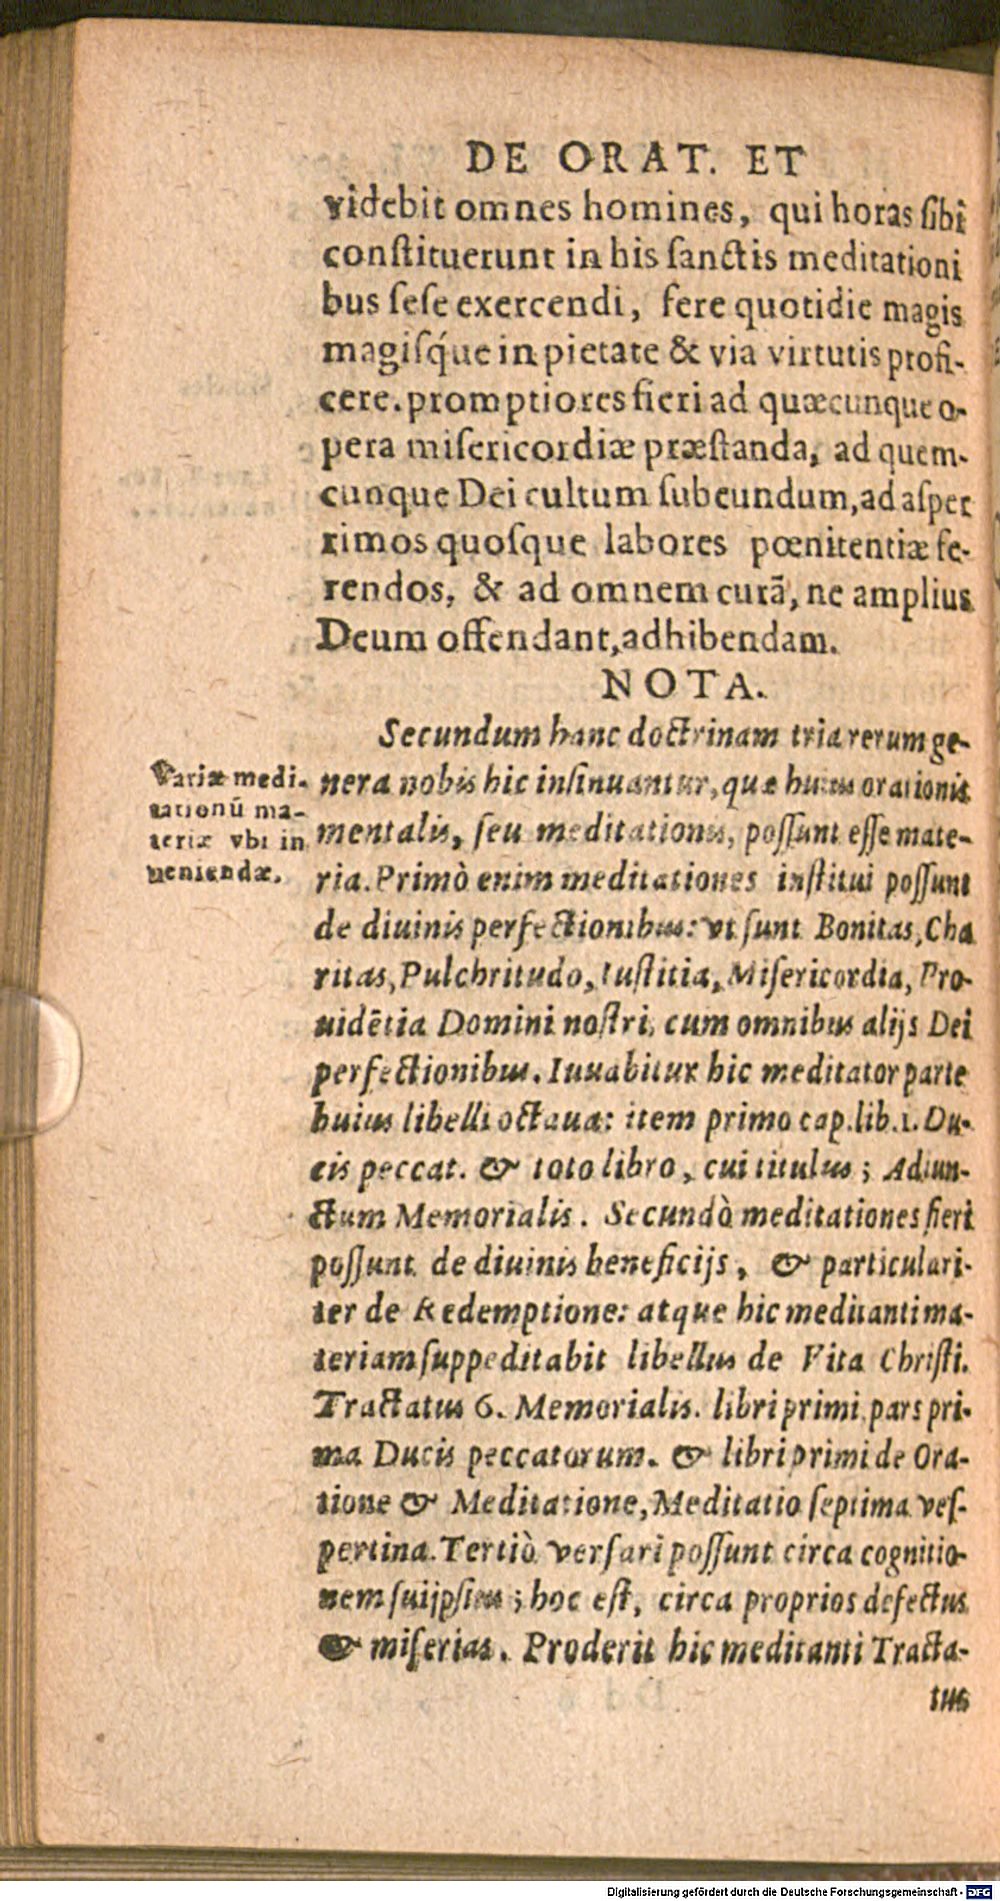 DE ORAT. ET
videbit omnes homines, qui horas ſibi
conſtituerunt in his ſanctis meditationi
bus ſeſe exercendi, fere quotidie magis
magiſq́ue in pietate & via virtutis profi-
cere. promptiores fieri ad quæcunque o-
pera miſericordiæ præſtanda, ad quem-
cunque Dei cultum ſubeundum, ad aſper
rimos quoſque labores pœnitentiæ fe-
rendos, & ad omnem curã, ne amplius
Deum offendant, adhibendam.
NOTA.
Secundum hanc doctrinam tria rerum ge-
nera nobis hic inſinuantur, quæ huius orationis
mentalis, ſeu meditationis, poſſunt eſſe mate-
ria. Primò enim meditationes inſtitui poſſunt
de diuinis perfectionibus: vt ſunt Bonitas, Cha
ritas, Pulchritudo, Iuſtitia, Miſericordia, Pro-
uidẽtia Domini noſtri, cum omnibus alijs Dei
perfectionibus. Iuuabitur hic meditator parte
huius libelli octaua: item primo cap. lib. 1. Du-
cis peccat. & toto libro, cui titulus; Adiun-
ctum Memorialis. Secundò meditationes fieri
poſſunt de diuinis beneficijs, & particulari-
ter de Redemptione: atque hic meditanti ma-
teriam ſuppeditabit libellus de Vita Chriſti.
Tractatus 6. Memorialis. libri primi pars pri-
ma Ducis peccatorum. & libri primi de Ora-
tione & Meditatione, Meditatio ſeptima veſ-
pertina. Tertiò verſari poſſunt circa cognitio-
nem ſuijpſius; hoc eſt, circa proprios defectus
& miſerias. Proderit hic meditanti Tracta-
tus
Variæ medi-
tationũ ma-
teriæ vbi in
ueniendæ.
Digitalisierung gefördert durch die Deutsche Forschungsgemeinschaft - DFG